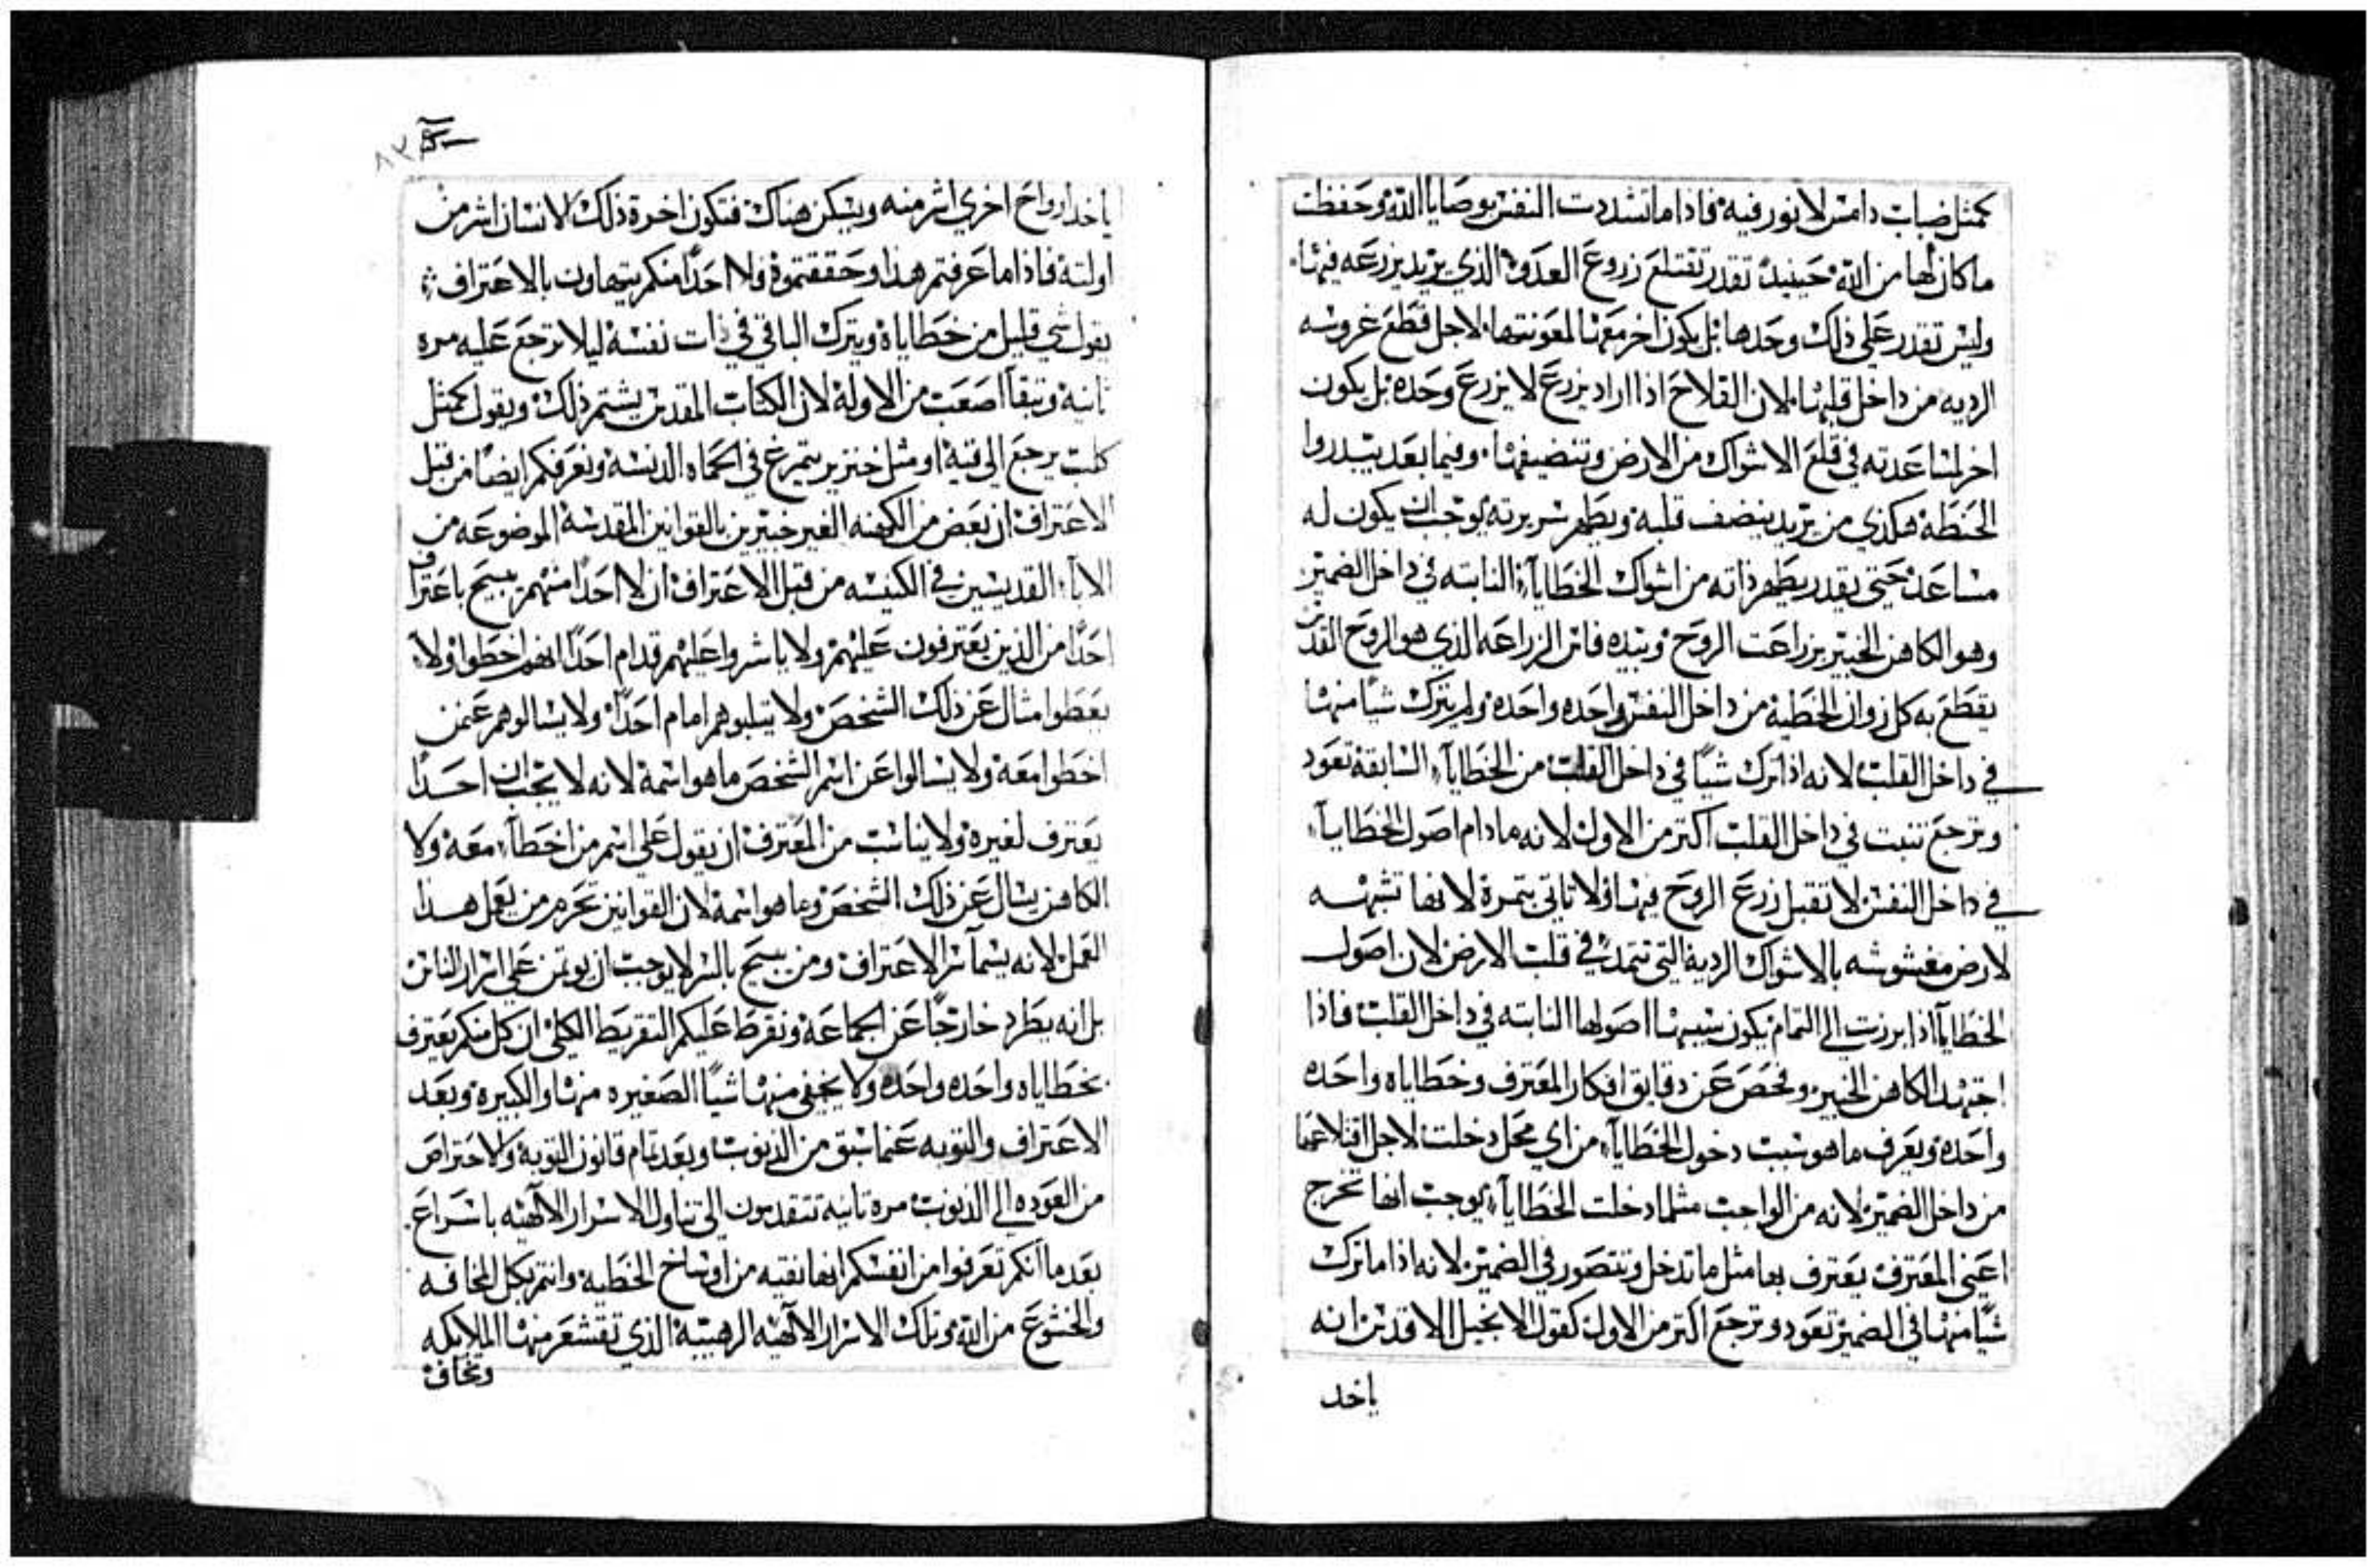 كمثل ضباب دامس لا نور فيه فاذا ما تشددت النفس بوصايا الله وحفظت
ما كان لها من الله حينيدٍ تقدر تقتلع زروع العدو الذي يريد يزرعه فيها
وليس تقدر على ذلك وحدها بل يكون اخر معها لمعونتها لاجل قطع غروسه
الرديه من داخل قلبها لان الفلاح اذا اراد يزرع لا يزرع وحده بل يكون
اخر لمساعدته في قلع الاشواك من الارض وتنضيفها وفيما بعد يبدروا
الحنطة هكذي من يريد ينضف قلبه ويطهر سريرته يوجب ان يكون له
مساعد حتى يقدر يطهر ذاته من اشواك الخطايا النابته في داخل الضمير
وهو الكاهن الخبير بزراعت الروح وبيده فاس الزراعه الذي هو الروح القدس
يقطع به كل زوان الخطية من داخل النفس واحده واحده ولم يترك شياً منها
في داخل القلب لانه اذا ترك شياً في داخل القلب من الخطايا السابقة تعود
وترجع تنبت في داخل القلب اكتر من الاول لانه ما دام اصول الخطايا
في داخل النفس لا تقبل زرع الروح فيها ولا تاتي بتمرة لانها تشبه
لارض مغشوشه بالاشواك الردية التي تتمد في قلب الارض لان اصول
الخطايا اذا برزت الى التمام يكون سببها اصولها النابته في داخل القلب فاذا
اجتهد الكاهن الخبير وفحص عن دقايق افكار المعترف وخطاياه واحده
واحده ويعرف ما هو سبب دخول الخطايا من اي محل دخلت لاجل اقتلاعها
من داخل الضمير لانه من الواجب مثلما دخلت الخطايا يوجب انها تخرج
اعني المعترف يعترف بها مثل ما تدخل وتتصور في الضمير لانه اذا ما ترك
شياً منها في الضمير تعود وترجع اكتر من الاول كقول الانجيل الاقدس انه
ياخد
٨٢
ياخد ارواح اخري اشر منه ويسكن هناك فتكون اخرة ذلك الانسان اشر من
اولته فاذا ما عرفتم هذا وحققتموه فلا احداً منكم يتهاون بالاعتراف
يقول شي قليل من خطاياه ويترك الباقي في ذات نفسه ليلا ترجع عليه مره
تانيه وتبقا اصعب من الاولة لان الكتاب المقدس يشتم ذلك ويقول كمثل
كلب يرجع الى قيه او مثل خنزير يتمرغ في الحماه الدنسه ونعرفكم ايضاً من قبل
الاعتراف ان بعض من الكهنه الغير خبيرين بالقوانين المقدسه الموضوعه من
الابآ القديسين في الكنيسه من قبل الاعتراف ان لا احداً منهم يسبح باعتراف
احداً من الذين يعترفون عليهم ولا ياشروا عليهم قدام احداً انهم اخطوا ولا
يعطوا مثال عن ذلك الشخص ولا يتلبوهم امام احداً ولا يسالوهم عمن
اخطوا معه ولا يسالوا عن اسم الشخص ما هو اسمه لانه لا يجب ان احداً
يعترف لغيره ولا يناسب من المعترف ان يقول على اسم من اخطآ معه ولا
الكاهن يسال عن ذلك الشخص وما هو اسمه لان القوانين تحرم من يعمل هذا
العمل لانه يسمآ سر الاعتراف ومن يسبح بالسر لا يوجب ان يوتمن علي اسرار الناس
بل انه يطرد خارجاً عن الجماعة ونقرط عليكم التقريط الكلي ان كل منكم يعترف
بخطاياه واحده واحده ولا يخفي منها شياً الصغيره منها والكبيره وبعد
الاعتراف والتوبه عما سبق من الذنوب وبعد تمام قانون التوبه والاحتراص
من العوده الى الدنوب مره تانيه تتقدمون الى تناول الاسرار الالهيه باسراع
بعد ما انكم تعرفوا من انفسكم انها نقيه من اوساخ الخطيه وانتم بكل المخافه
والخشوع من الله وتلك الاسرار الالهيه الرهيبة الذي تقشعر منها الملايكه
وتخاف